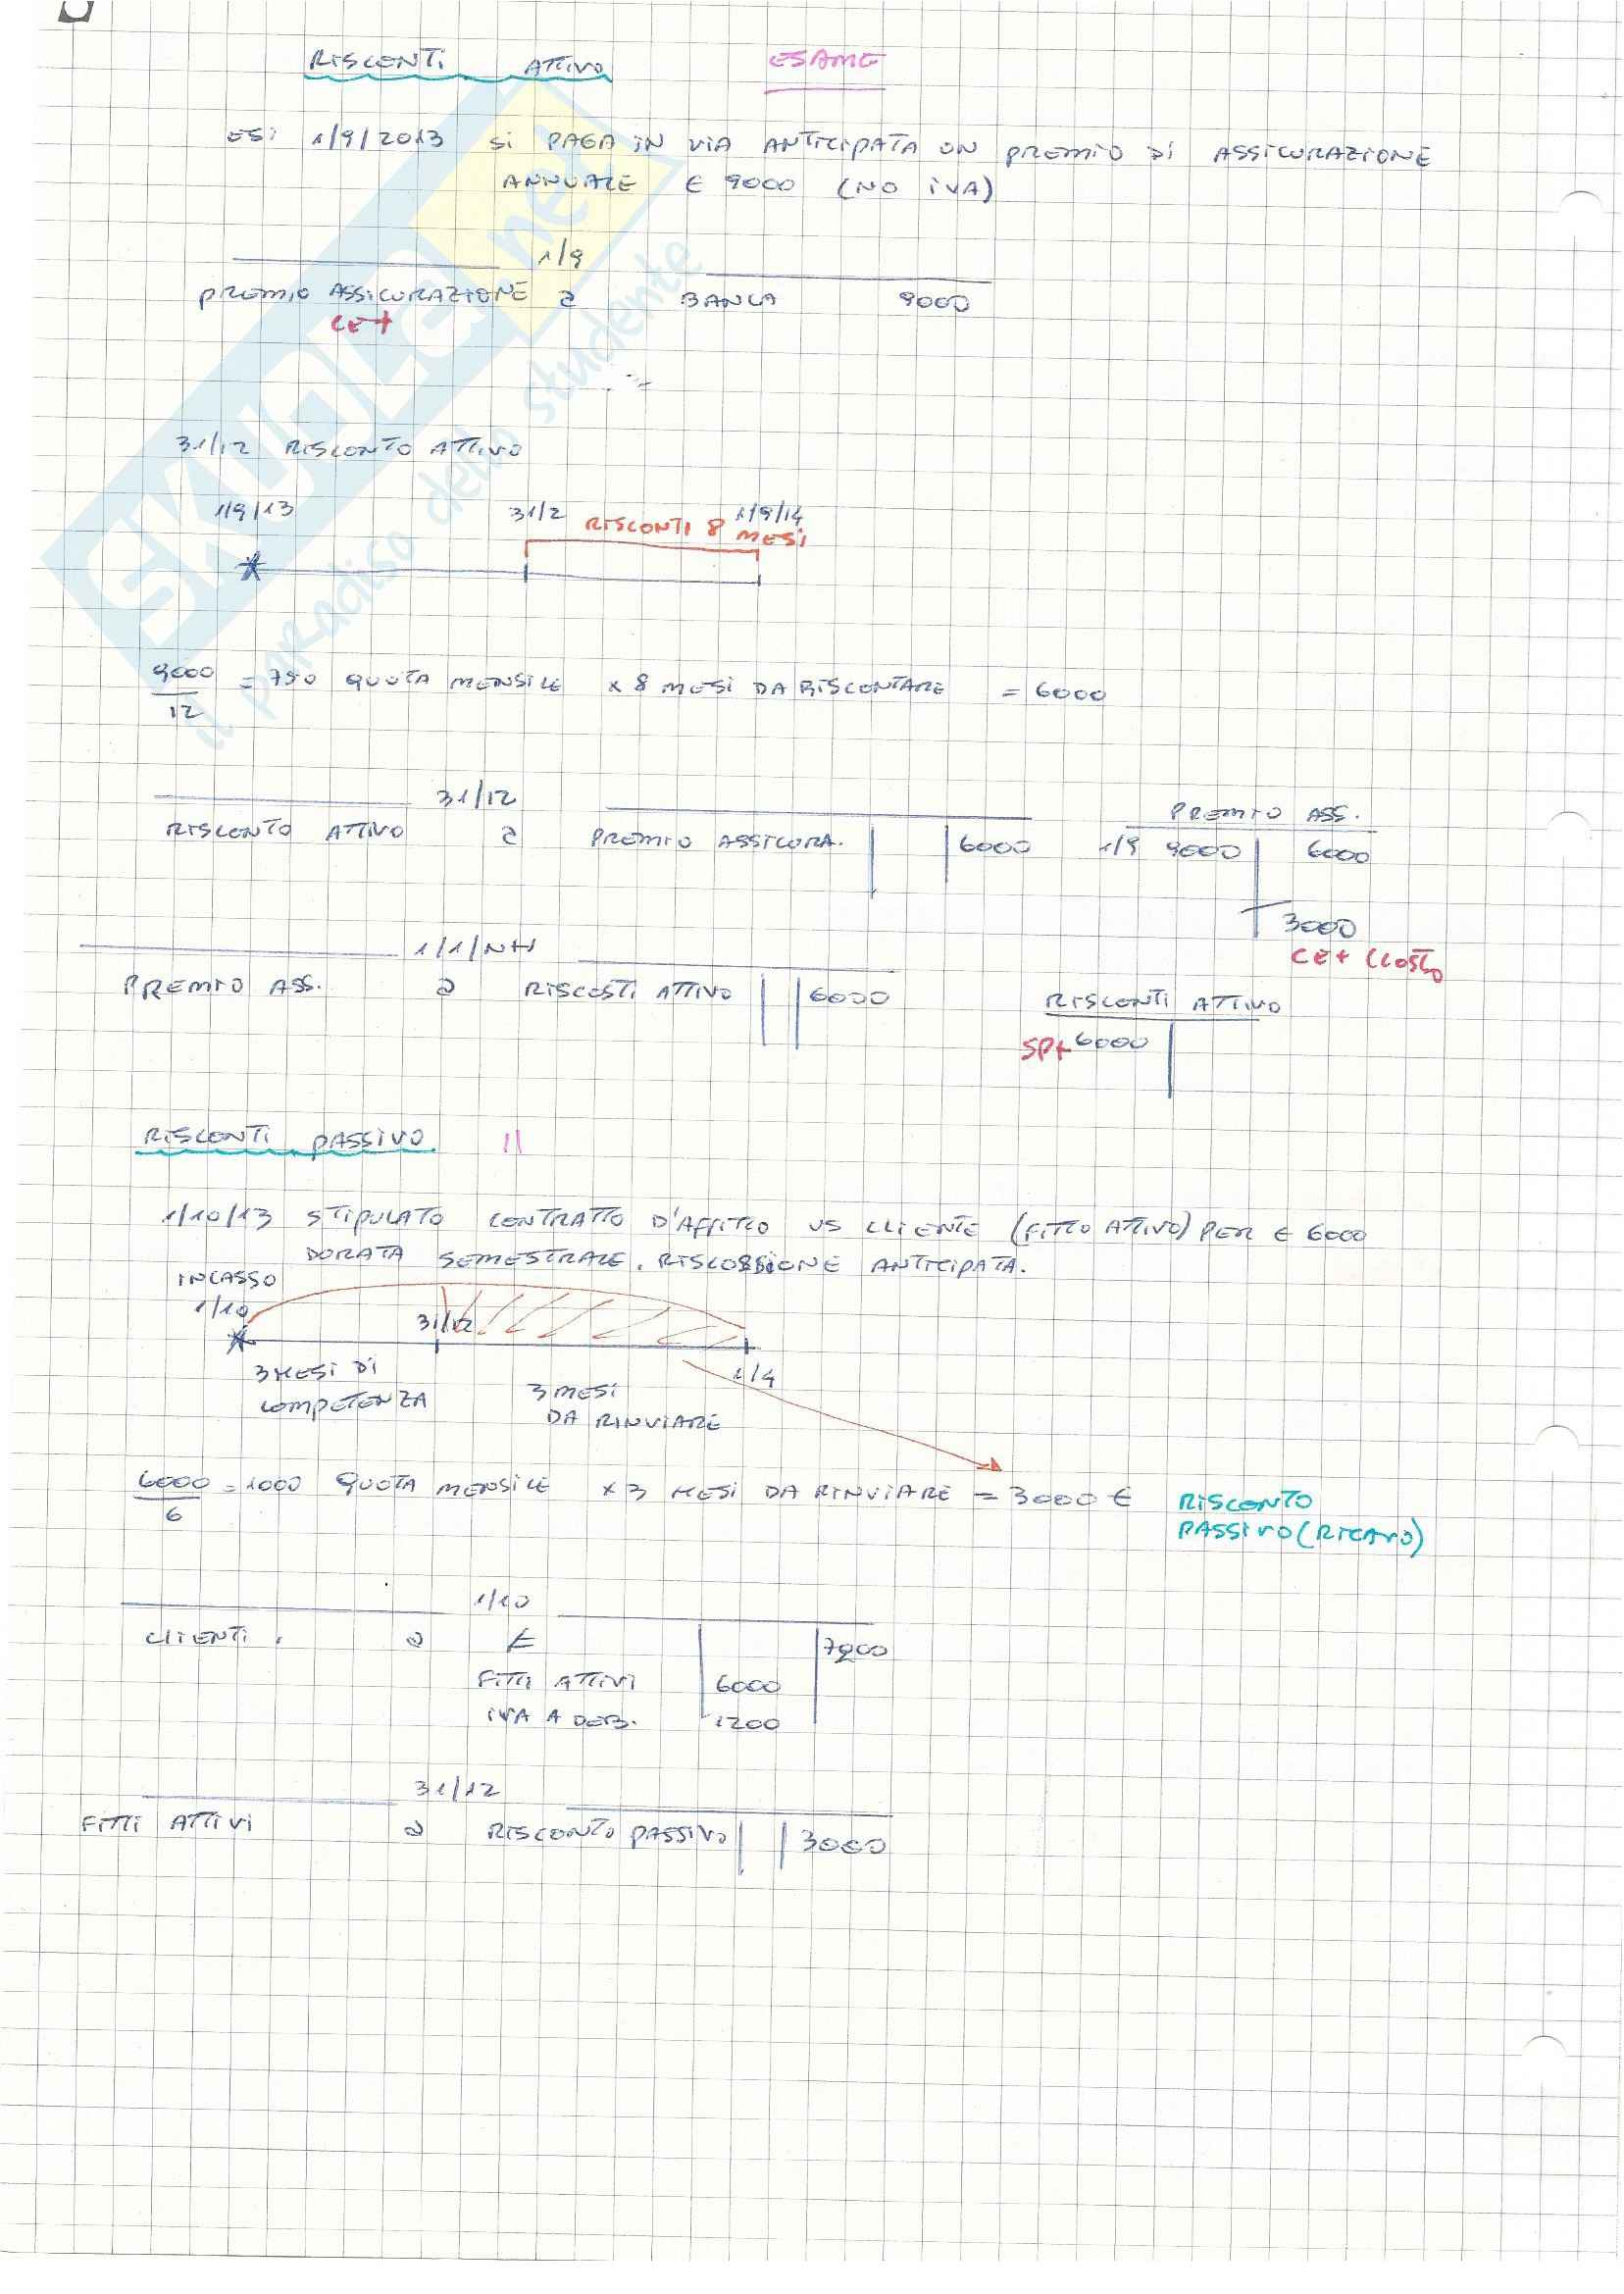 RISCONTI ATTIVO ESAME
ES: 1/9/2013 SI PAGA IN VIA ANTICIPATA UN PREMIO DI ASSICURAZIONE
ANNUALE € 9000 (NO IVA)
1/9
PREMIO ASSICURAZIONE a BANCA 9000
CE+
31/12 RISCONTO ATTIVO
1/9/13 31/2 RISCONTI 8 MESI 1/9/14
9000/12 = 750 QUOTA MENSILE x 8 MESI DA RISCONTARE = 6000
31/12
RISCONTO ATTIVO a PREMIO ASSICURA. 6000
PREMIO ASS.
1/9 9000 6000
3000
CE+ (COSTO
1/1/N+1
PREMIO ASS. a RISCOSTI ATTIVO 6000
RISCONTI ATTIVO
SP+ 6000
RISCONTI PASSIVO
1/10/13 STIPULATO CONTRATTO D'AFFITTO VS CLIENTE (FITTO ATTIVO) PER € 6000
DURATA SEMESTRALE. RISCOSSIONE ANTICIPATA.
INCASSO
1/10 31/12 1/4
3 MESI DI
COMPETENZA
3 MESI
DA RINVIARE
6000/6 = 1000 QUOTA MENSILE x 3 MESI DA RINVIARE = 3000 € RISCONTO
PASSIVO (RICAVO)
1/10
CLIENTI a € 7200
FITTI ATTIVI 6000
IVA A DEB. 1200
31/12
FITTI ATTIVI a RISCONTO PASSIVO 3000
SKUOLA.net
il paradiso dello studente